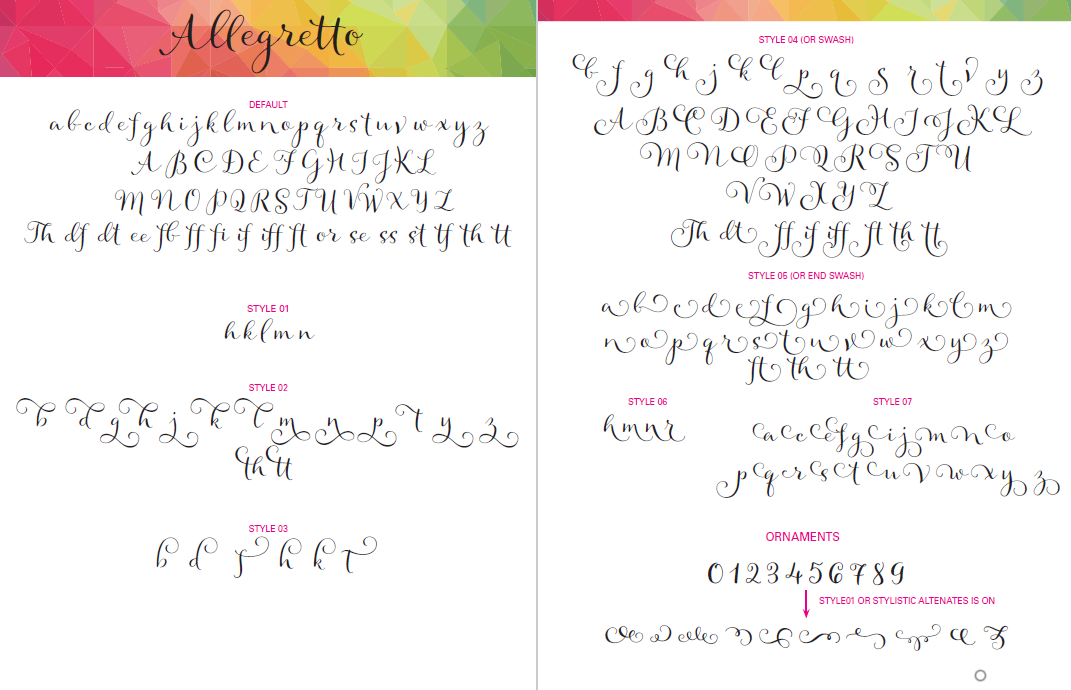 Allegretto
DEFAULT
a b c d e f g h i j k l m n o p q r s t u v w x y z
A B C D E F G H I J K L
M N O P Q R S T U V W X Y Z
Th df dt ee fb ff fi if iff ft or se ss st tf th tt
STYLE 01
h k l m n
STYLE 02
b d g h j k l m n p t y z
th tt
STYLE 03
b d f h k t
STYLE 04 (OR SWASH)
b f g h j k l p q s r t v y z
A B C D E F G H I J K L
M N O P Q R S T U
V W X Y Z
Th dt ff if iff ft th tt
STYLE 05 (OR END SWASH)
a b c d e f g h i j k l m
n o p q r s t u v w x y z
ft th tt
STYLE 06
h m n r
STYLE 07
a c e f g i j m n o
p q r s t u v w x y z
ORNAMENTS
0 1 2 3 4 5 6 7 8 9
STYLE01 OR STYLISTIC ALTENATES IS ON